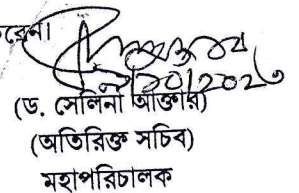 করেন।
(ড. সেলিনা আক্তার)
(অতিরিক্ত সচিব)
মহাপরিচালক